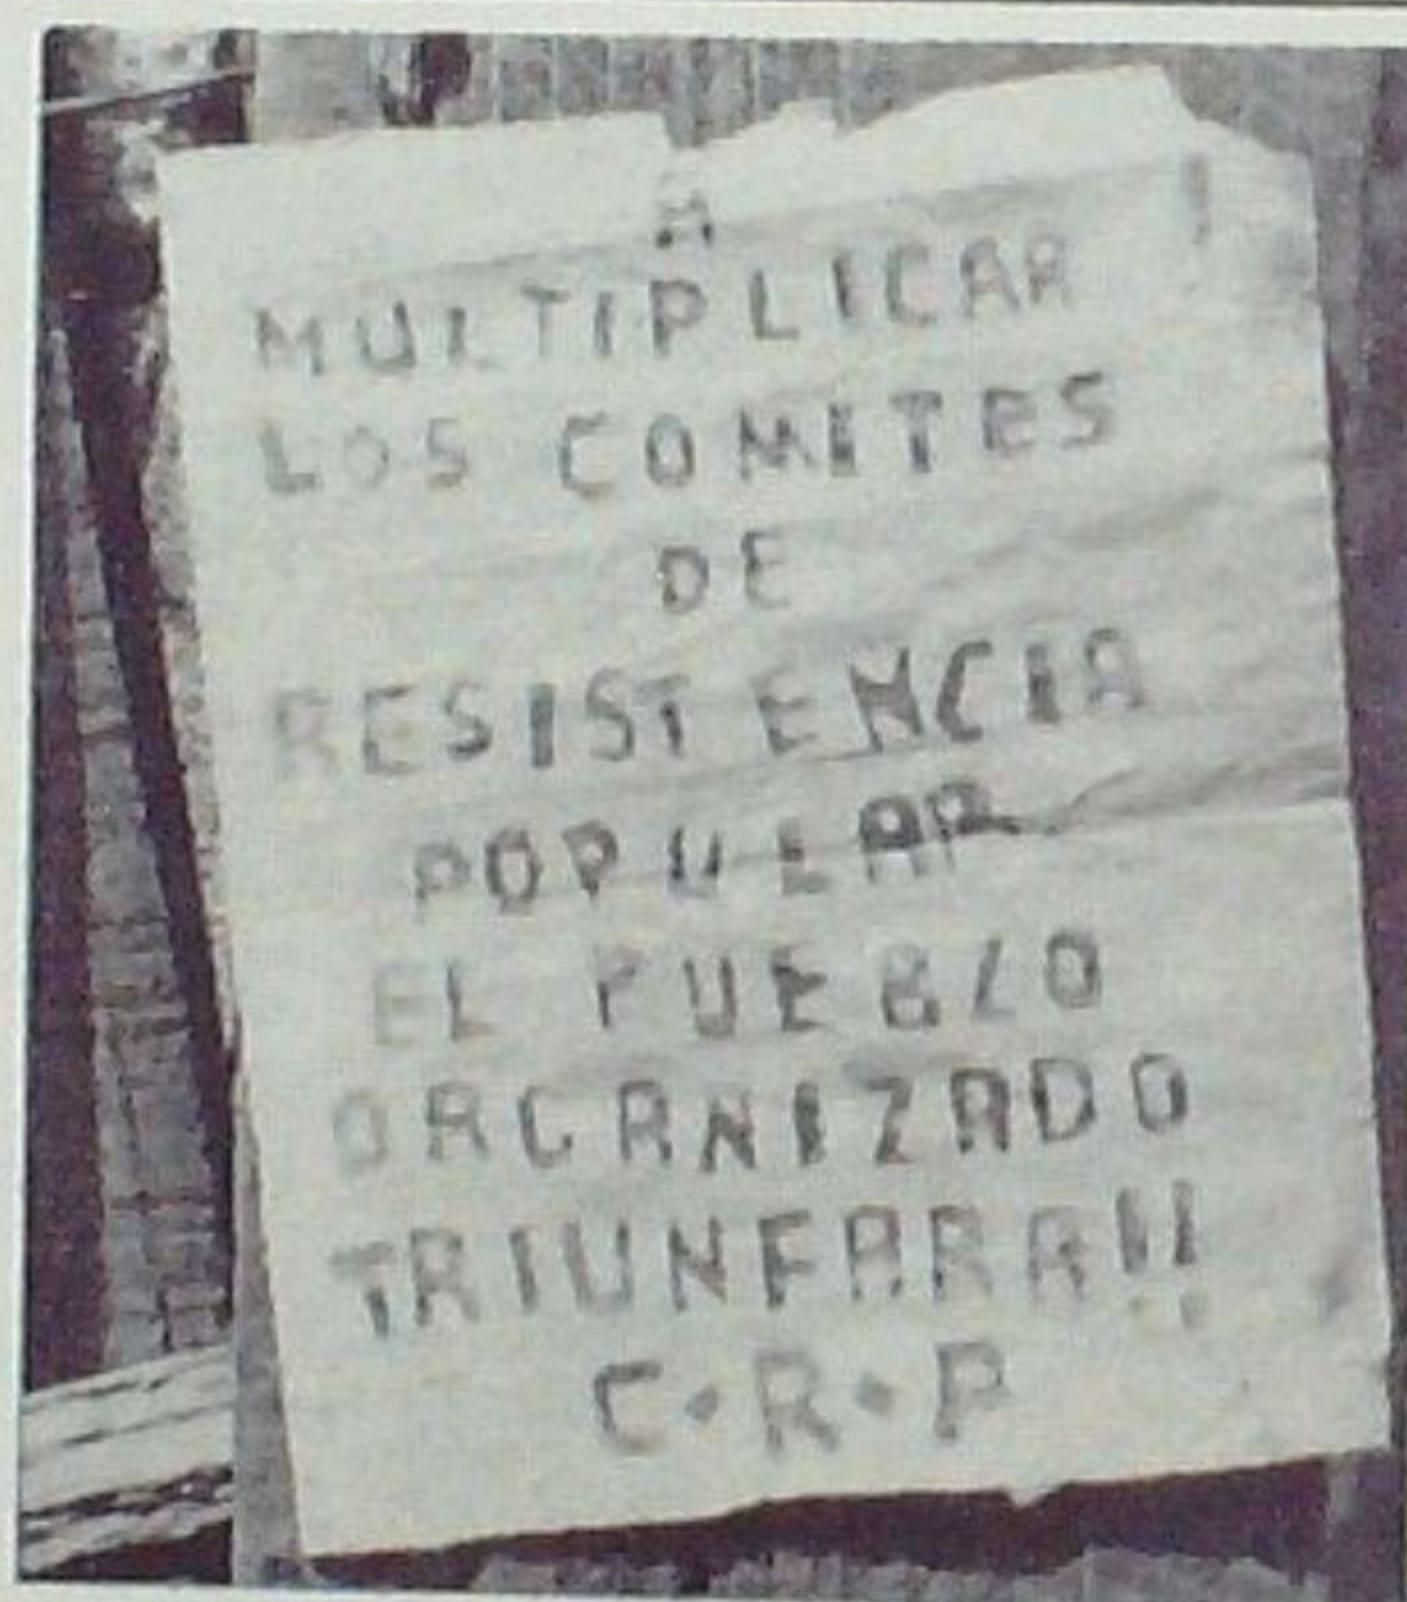 A
MULTIPLICAR !
LOS COMITES
DE
RESISTENCIA
POPULAR
EL PUEBLO
ORGANIZADO
TRIUNFARA!!
C.R.P